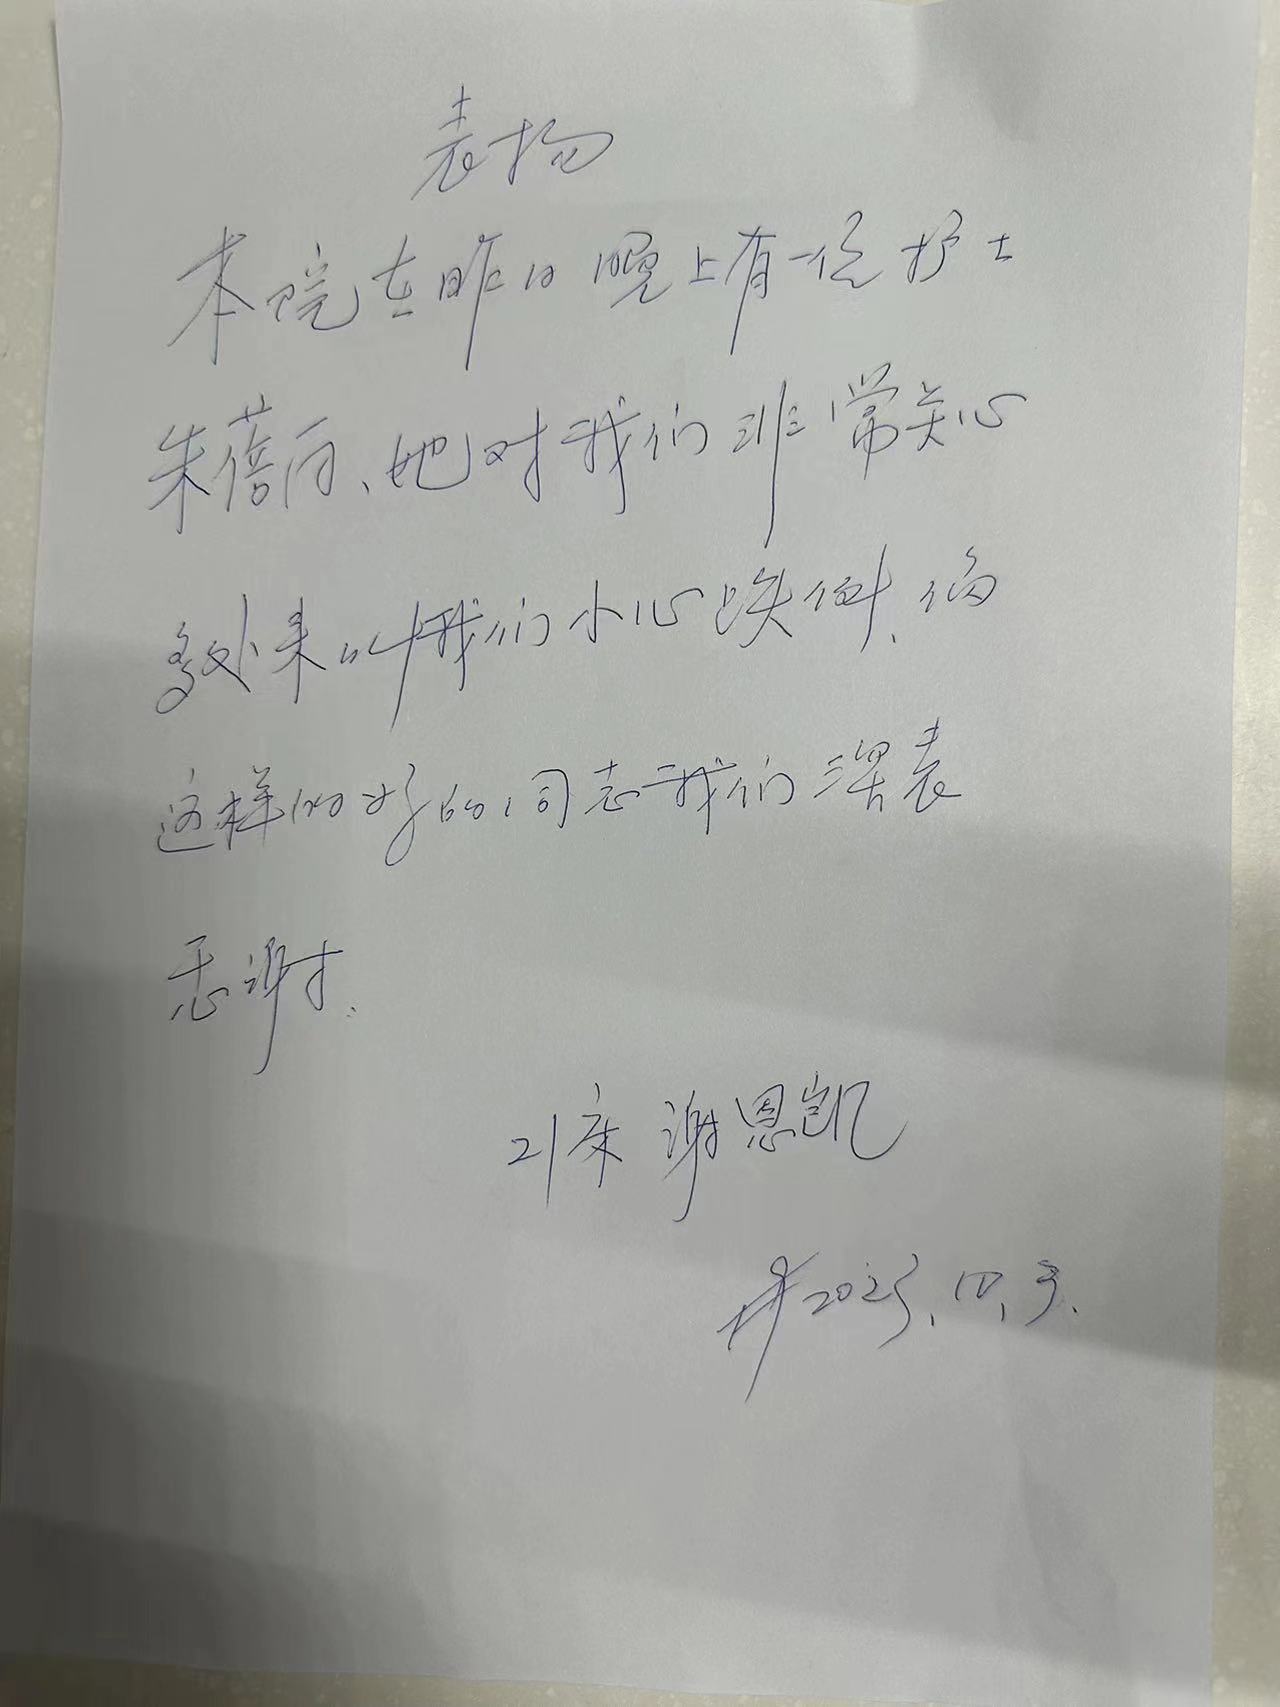 表扬
本院在昨日晚上有一位护士
朱蓓丽、她对我们非常关心
多处来叫我们小心跌倒、像
这样的好的同志我们深表
感谢.
21床 谢恩凯
2025.10.3.